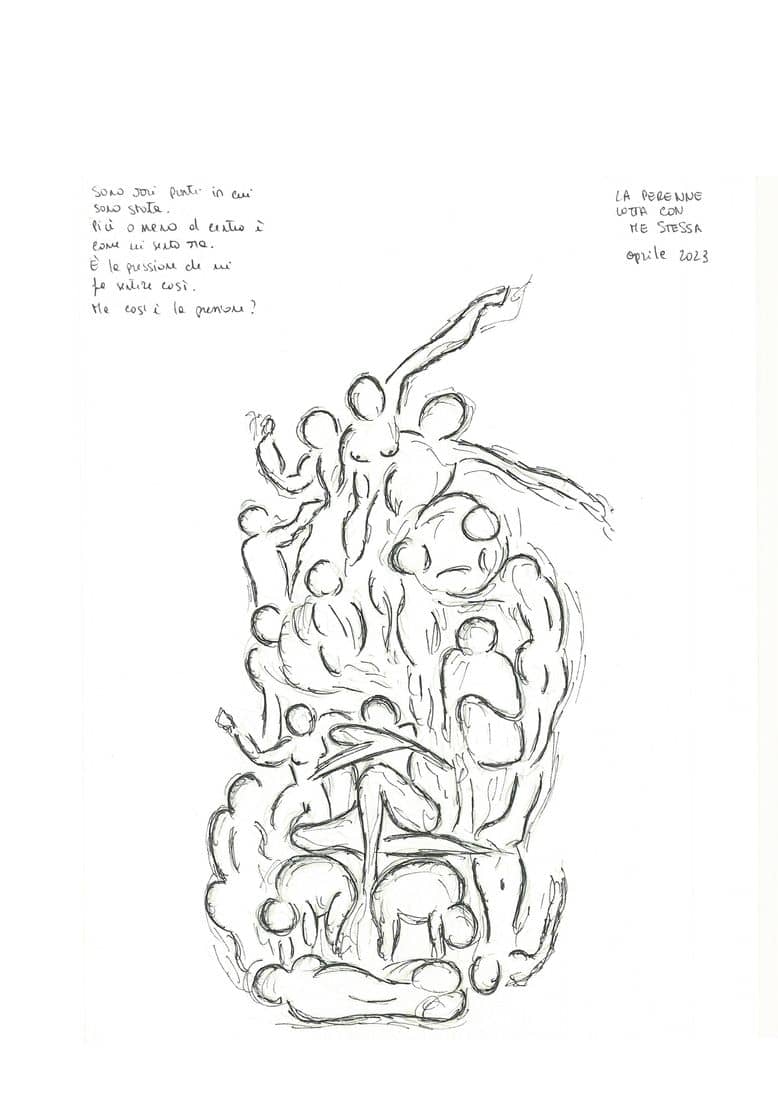 Sono vari punti in cui
sono stata.
Più o meno al centro è
come mi sento ora.
È la pressione che mi
fa sentire così.
Ma cos'è la pressione?
LA PERENNE
LOTTA CON
ME STESSA
aprile 2023